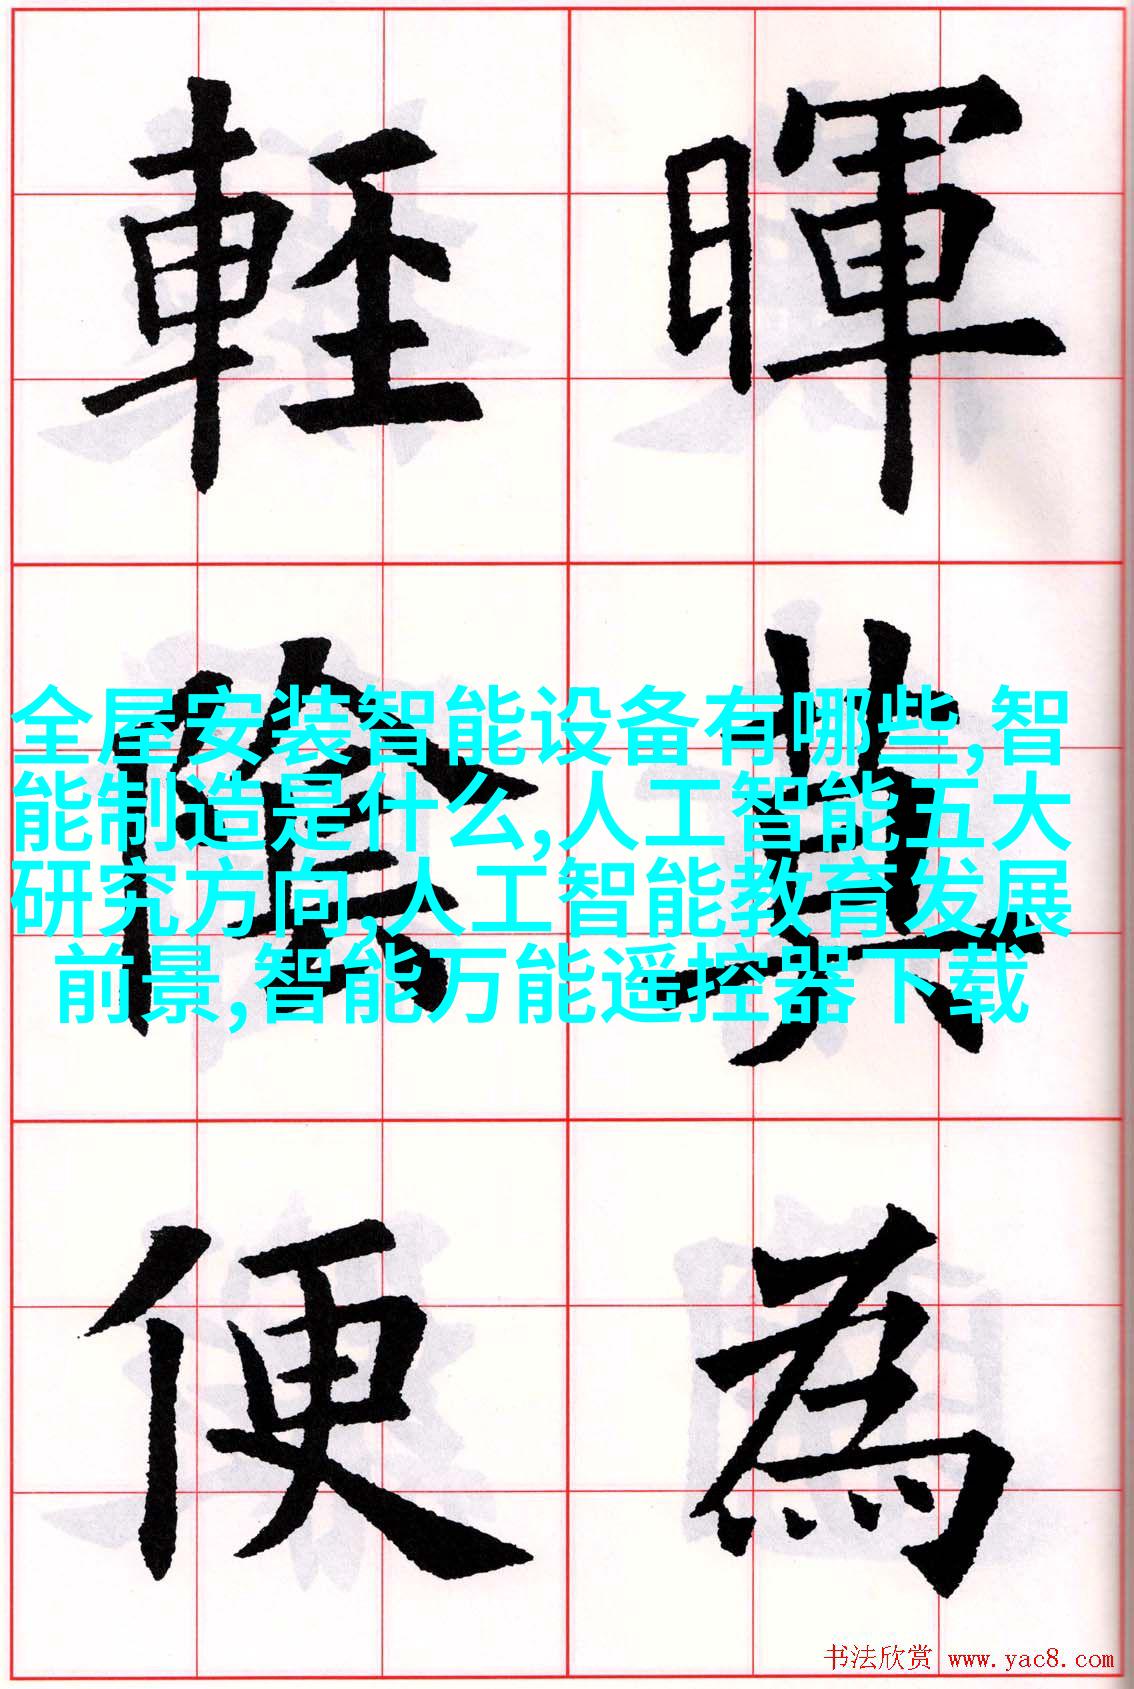 輕 暉
陰 莫
便 為
全屋安装智能设备有哪些,智
能制造是什么,人工智能五大
研究方向,人工智能教育发展
前景,智能万能遥控器下载
书法欣赏 www.yac8.com